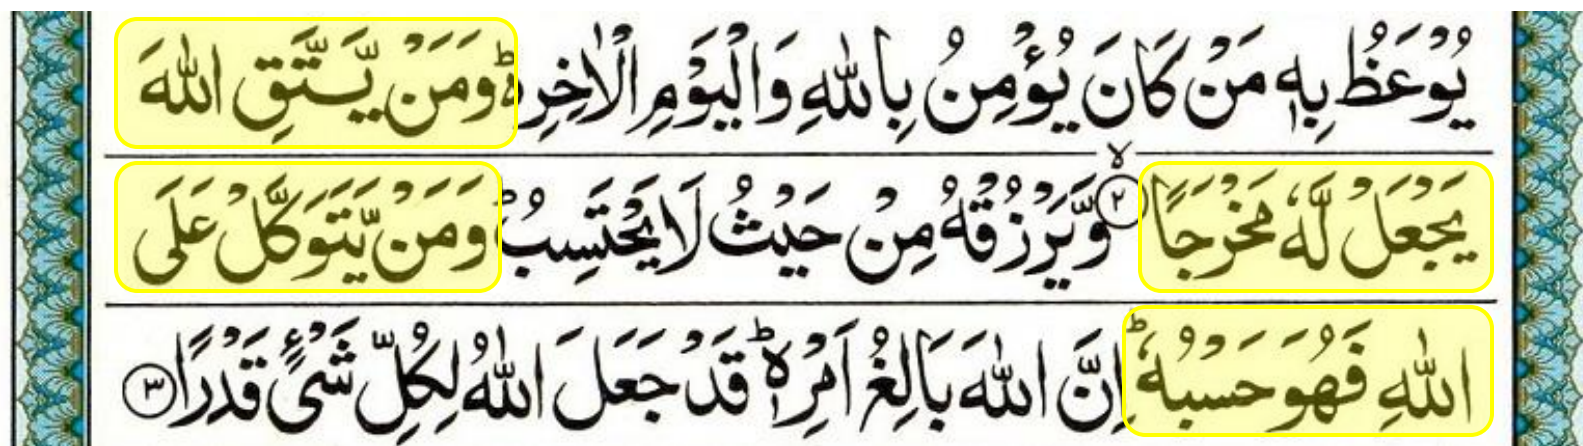 يُوْعَظُ بِهٖ مَنْ كَانَ يُؤْمِنُ بِاللّٰهِ وَالْيَوْمِ الْاٰخِرِ ؕ۬ وَمَنْ يَّتَّقِ اللّٰهَ
يَجْعَلْ لَّهٗ مَخْرَجًا ۙ﴿۲﴾ وَّيَرْزُقْهُ مِنْ حَيْثُ لَا يَحْتَسِبُ ؕ وَمَنْ يَّتَوَكَّلْ عَلَى
اللّٰهِ فَهُوَ حَسْبُهٗ ؕ اِنَّ اللّٰهَ بَالِغُ اَمْرِهٖ ؕ قَدْ جَعَلَ اللّٰهُ لِكُلِّ شَىْءٍ قَدْرًا ﴿۳﴾